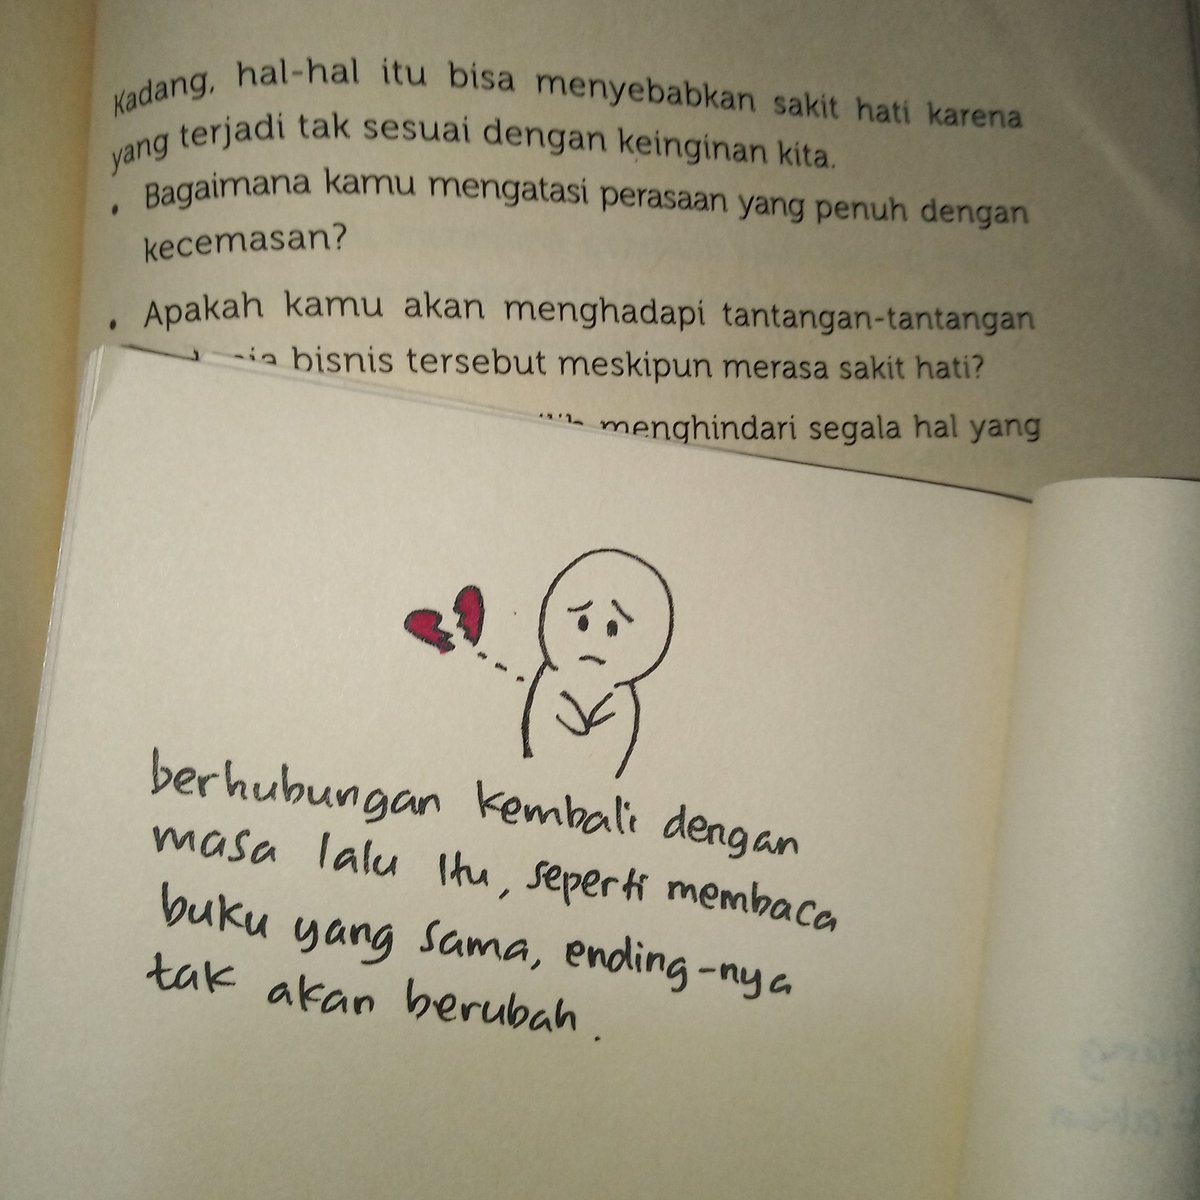 Kadang, hal-hal itu bisa menyebabkan sakit hati karena
yang terjadi tak sesuai dengan keinginan kita.
• Bagaimana kamu mengatasi perasaan yang penuh dengan
kecemasan?
• Apakah kamu akan menghadapi tantangan-tantangan
bisnis tersebut meskipun merasa sakit hati?
menghindari segala hal yang
berhubungan kembali dengan
masa lalu itu, seperti membaca
buku yang sama, ending-nya
tak akan berubah.